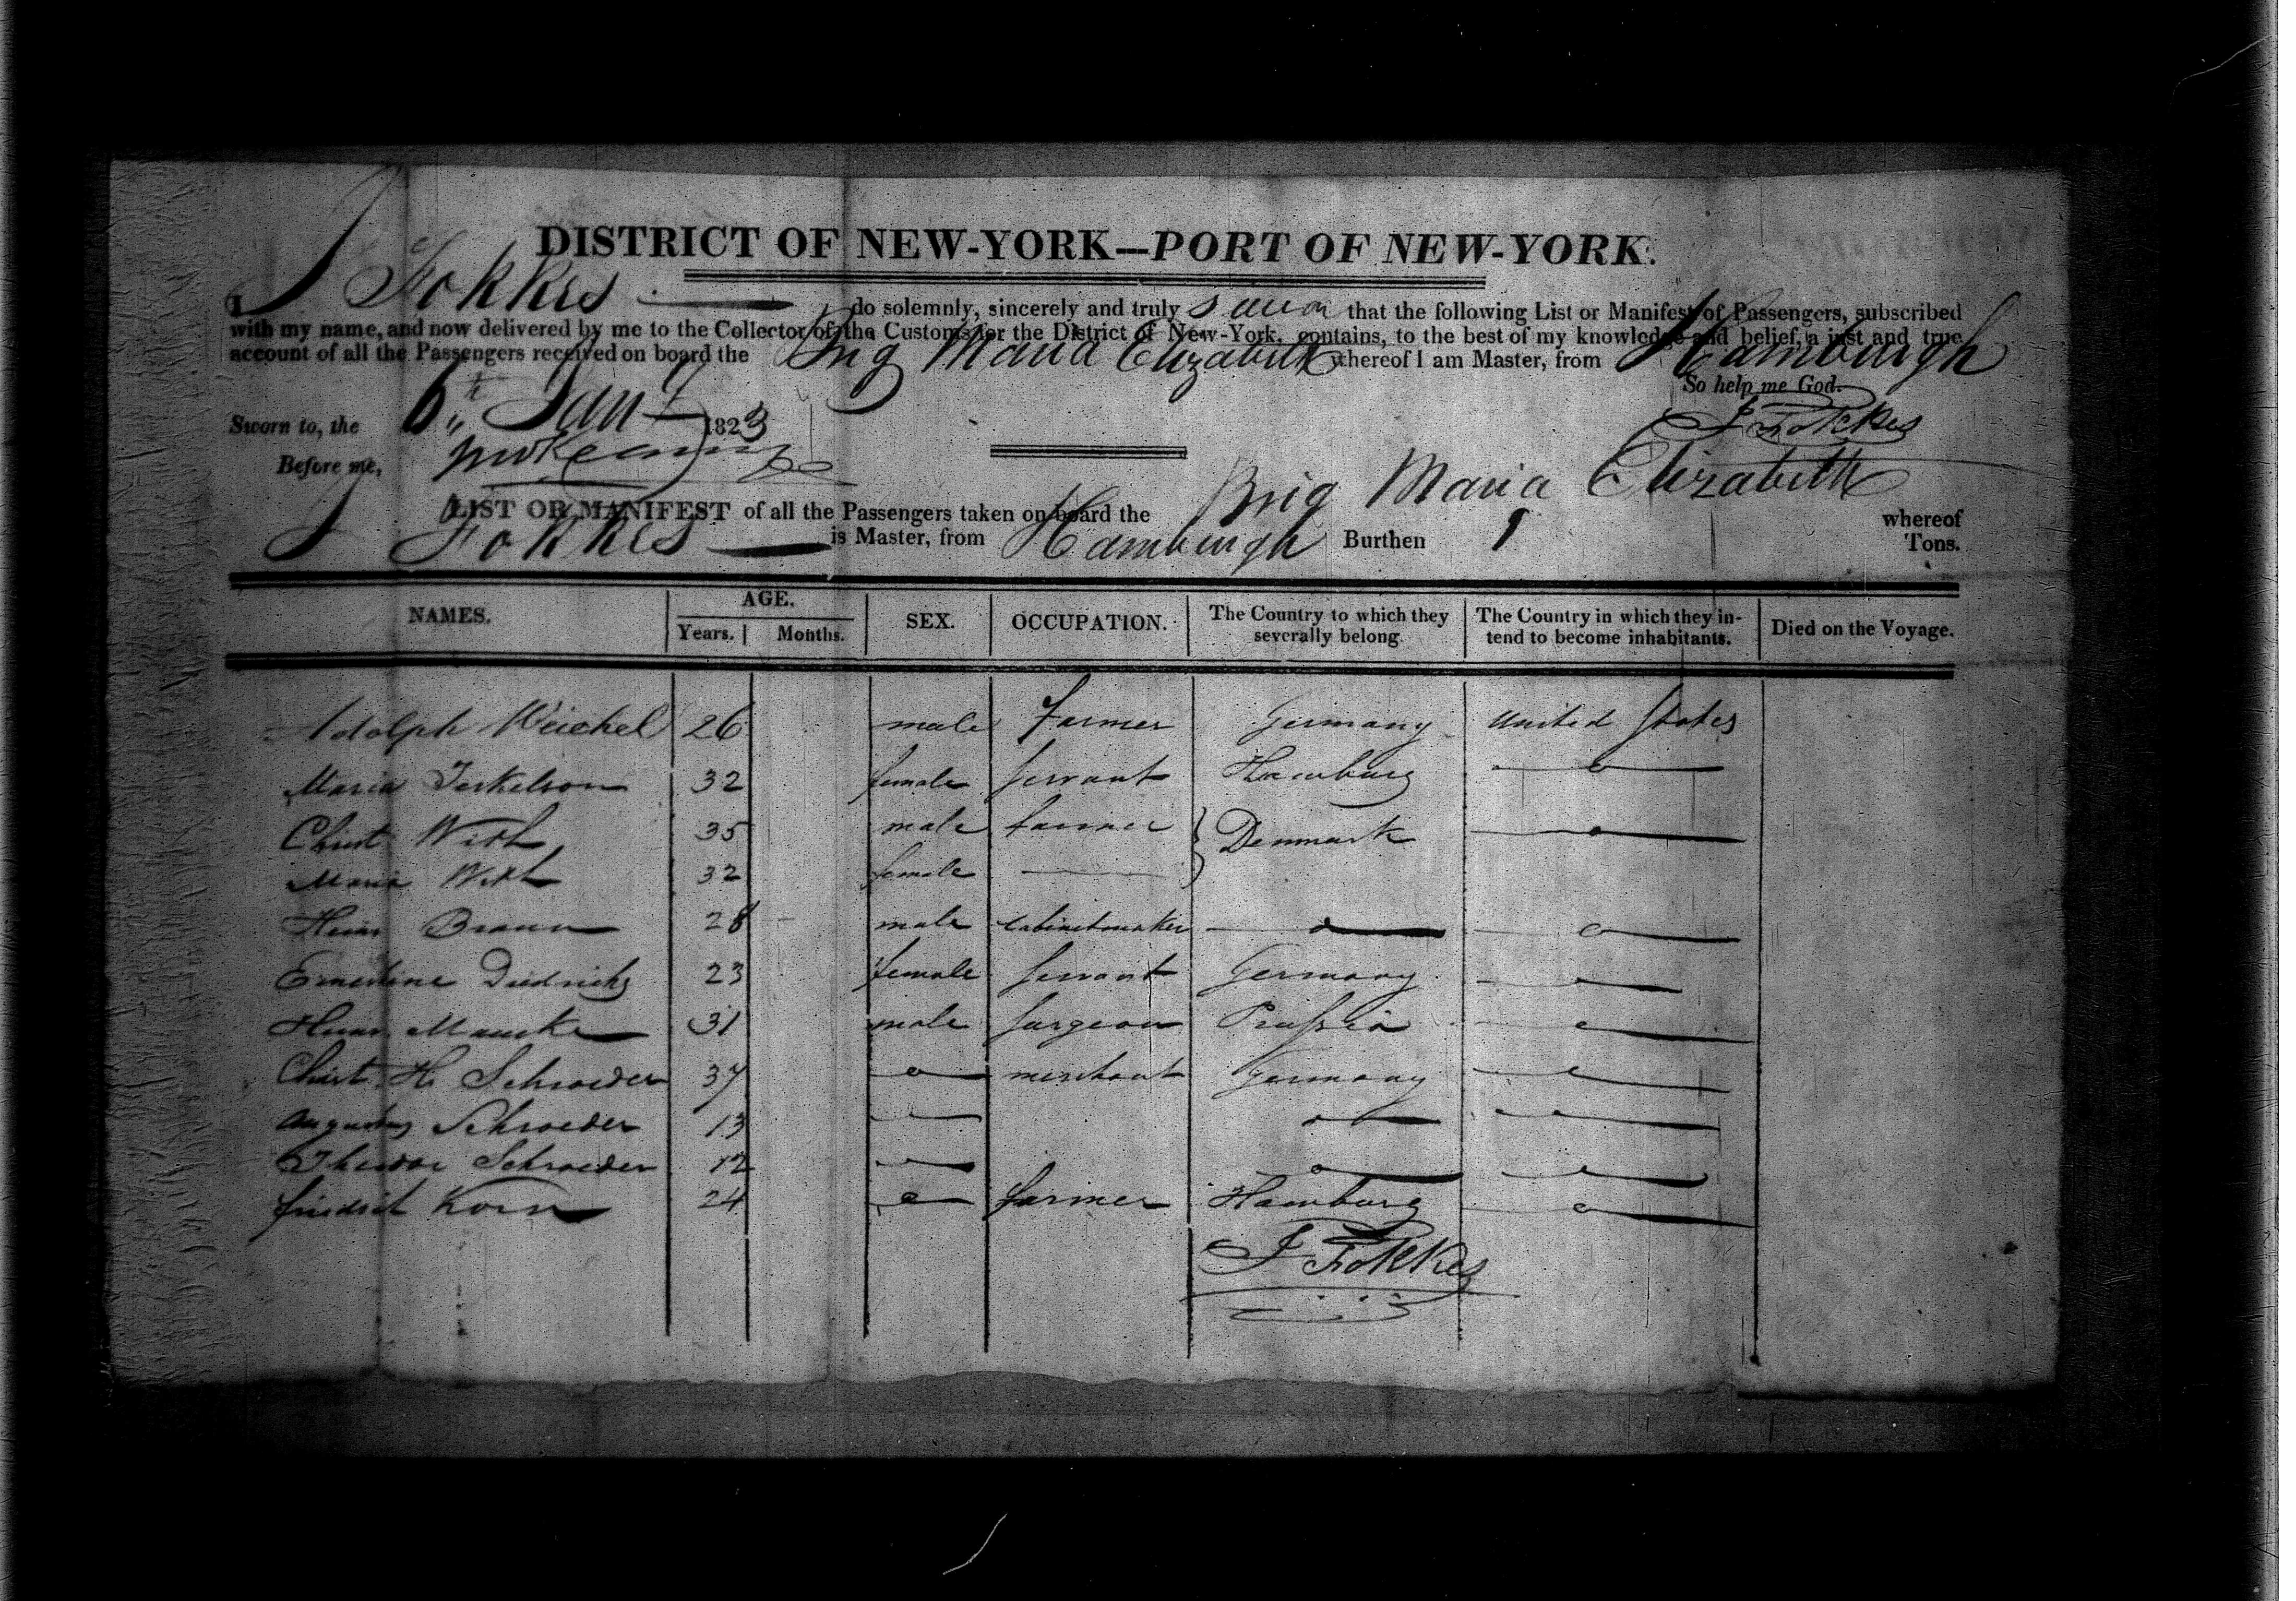 DISTRICT OF NEW-YORK—PORT OF NEW-YORK.
I J Fokkes do solemnly, sincerely and truly swear that the following List or Manifest of Passengers, subscribed
with my name, and now delivered by me to the Collector of the Customs for the District of New-York, contains, to the best of my knowledge and belief, a just and true
account of all the Passengers received on board the Brig Maria Elizabeth whereof I am Master, from Hamburgh
So help me God.
Sworn to, the 6th Jany 1823
J Fokkes
Before me,
LIST OR MANIFEST of all the Passengers taken on board the Brig Maria Elizabeth whereof
J Fokkes is Master, from Hamburgh Burthen Tons.
NAMES. AGE. SEX. OCCUPATION. The Country to which they severally belong. The Country in which they intend to become inhabitants. Died on the Voyage.
Years. Months.
Adolph Weichel 26 male farmer Germany United States
Maria Terkelson 32 female servant Hamburg
Christ With 35 male farmer Denmark
Maria With 32 female
Heinr Braun 28 male cabinetmaker
Ernestine Diedrichs 23 female servant Germany
Heinr Maucke 31 male surgeon Prussia
Christ. H. Schroeder 37 merchant Germany
Augustus Schroeder 13
Theodor Schroeder 12
friedrich Korn 24 farmer Hamburg
J Fokkes